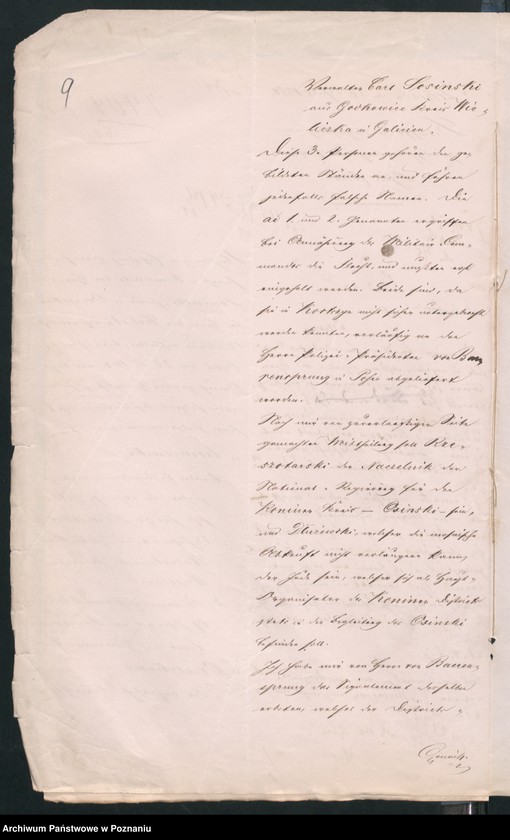 9
Verwalter Carl Sosinski
aus Godkowice Kreis Wie-
liczka in Galizien.
Diese 3 Personen gehören den ge-
bildeten Ständen an, und führen
jedenfalls falsche Namen. Die
ad 1. und 2. Genannten ergriffen
bei Annäherung des Militair-Com-
mandos die Flucht, und mußten erst
eingeholt werden. Beide sind, da
sie in nicht sicher untergebracht
werden konnten, vorläufig an den
Herrn Polizei-Präsidenten von Bae-
rensprung in Posen abgeliefert
worden.
Nach mir von zuverlässiger Seite
gemachter Mittheilung soll Krze-
szotarski der Naczelnik der
National-Regierung für den
Koniner Kreis — Osinski — sein,
und Dluzewski, welcher die mosaische
Abkunft nicht verläugnen kann,
der Jude sein, welcher sich als Haupt-
Organisator des Koniner Distrikts
stets in der Begleitung des Osinski
befunden soll.
Ich habe mir von Herrn von Baeren-
sprung das Signalement derselben
erbeten, welches der Distrikts-
Archiwum Państwowe w Poznaniu